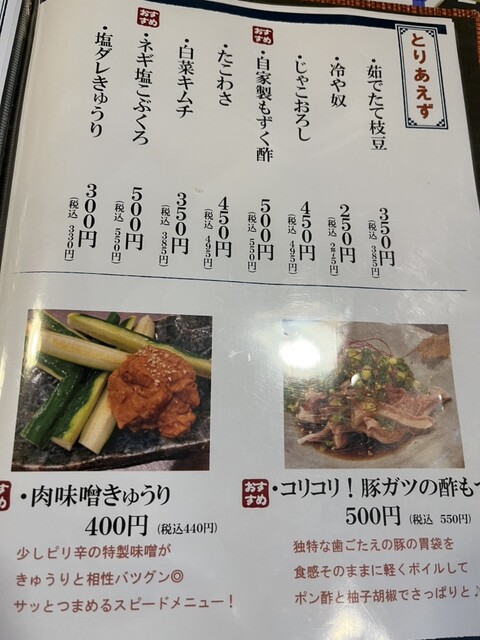 とりあえず
・茹でたて枝豆 350円（税込 385円）
・冷や奴 250円（税込 275円）
・じゃこおろし 450円（税込 495円）
おすすめ ・自家製もずく酢 500円（税込 550円）
・たこわさ 450円（税込 495円）
・白菜キムチ 350円（税込 385円）
おすすめ ・ネギ塩こぶくろ 500円（税込 550円）
・塩ダレきゅうり 300円（税込 330円）
・肉味噌きゅうり
400円（税込440円）
少しピリ辛の特製味噌が
きゅうりと相性バツグン◎
サッとつまめるスピードメニュー！
おすすめ ・コリコリ！豚ガツの酢も
500円（税込 550円）
独特な歯ごたえの豚の胃袋を
食感そのままに軽くボイルして
ポン酢と柚子胡椒でさっぱりと♪